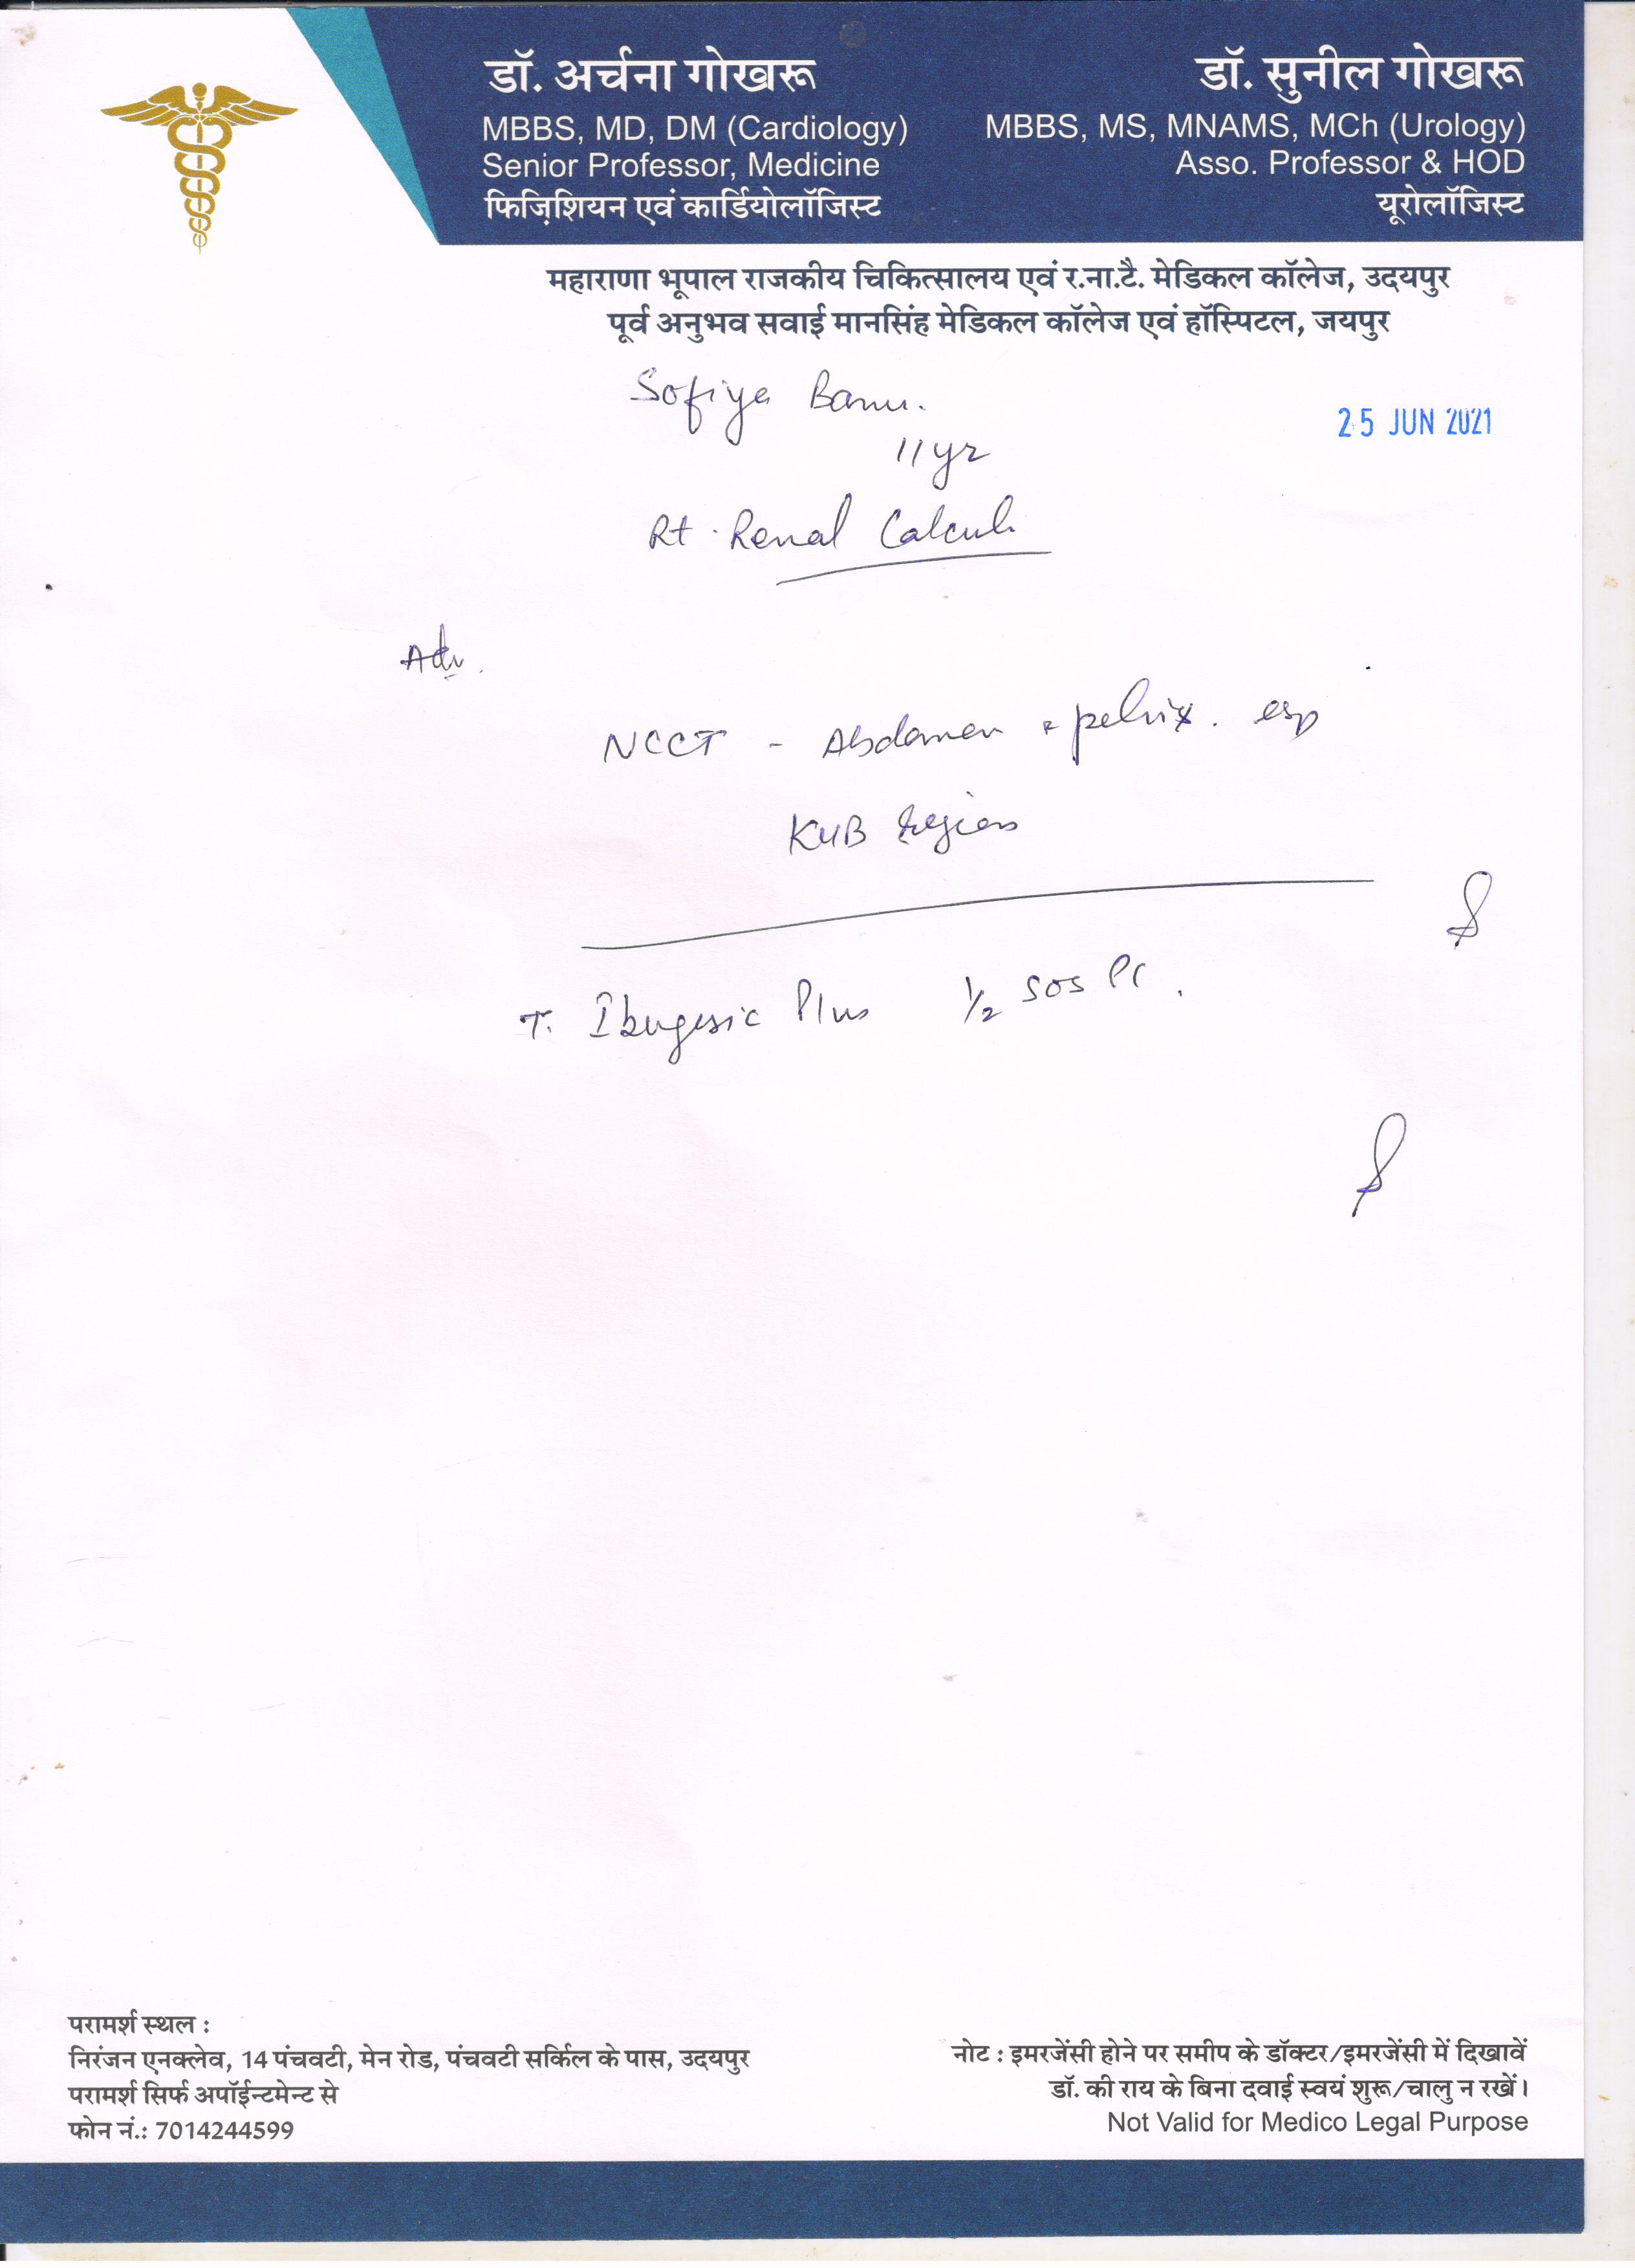 डॉ. अर्चना गोखरू
MBBS, MD, DM (Cardiology)
Senior Professor, Medicine
फिज़िशियन एवं कार्डियोलॉजिस्ट
डॉ. सुनील गोखरू
MBBS, MS, MNAMS, MCh (Urology)
Asso. Professor & HOD
यूरोलॉजिस्ट
महाराणा भूपाल राजकीय चिकित्सालय एवं र.ना.टै. मेडिकल कॉलेज, उदयपुर
पूर्व अनुभव सवाई मानसिंह मेडिकल कॉलेज एवं हॉस्पिटल, जयपुर
Sofiya Banu.
25 JUN 2021
11 yr
Rt. Renal Calculi
Adv.
NCCT - Abdomen & pelvis. esp
KUB Region
T. Ibugesic Plus 1/2 SOS
परामर्श स्थल :
निरंजन एनक्लेव, 14 पंचवटी, मेन रोड, पंचवटी सर्किल के पास, उदयपुर
परामर्श सिर्फ अपॉईन्टमेन्ट से
फोन नं.: 7014244599
नोट : इमरजेंसी होने पर समीप के डॉक्टर/इमरजेंसी में दिखावें
डॉ. की राय के बिना दवाई स्वयं शुरू/चालु न रखें।
Not Valid for Medico Legal Purpose